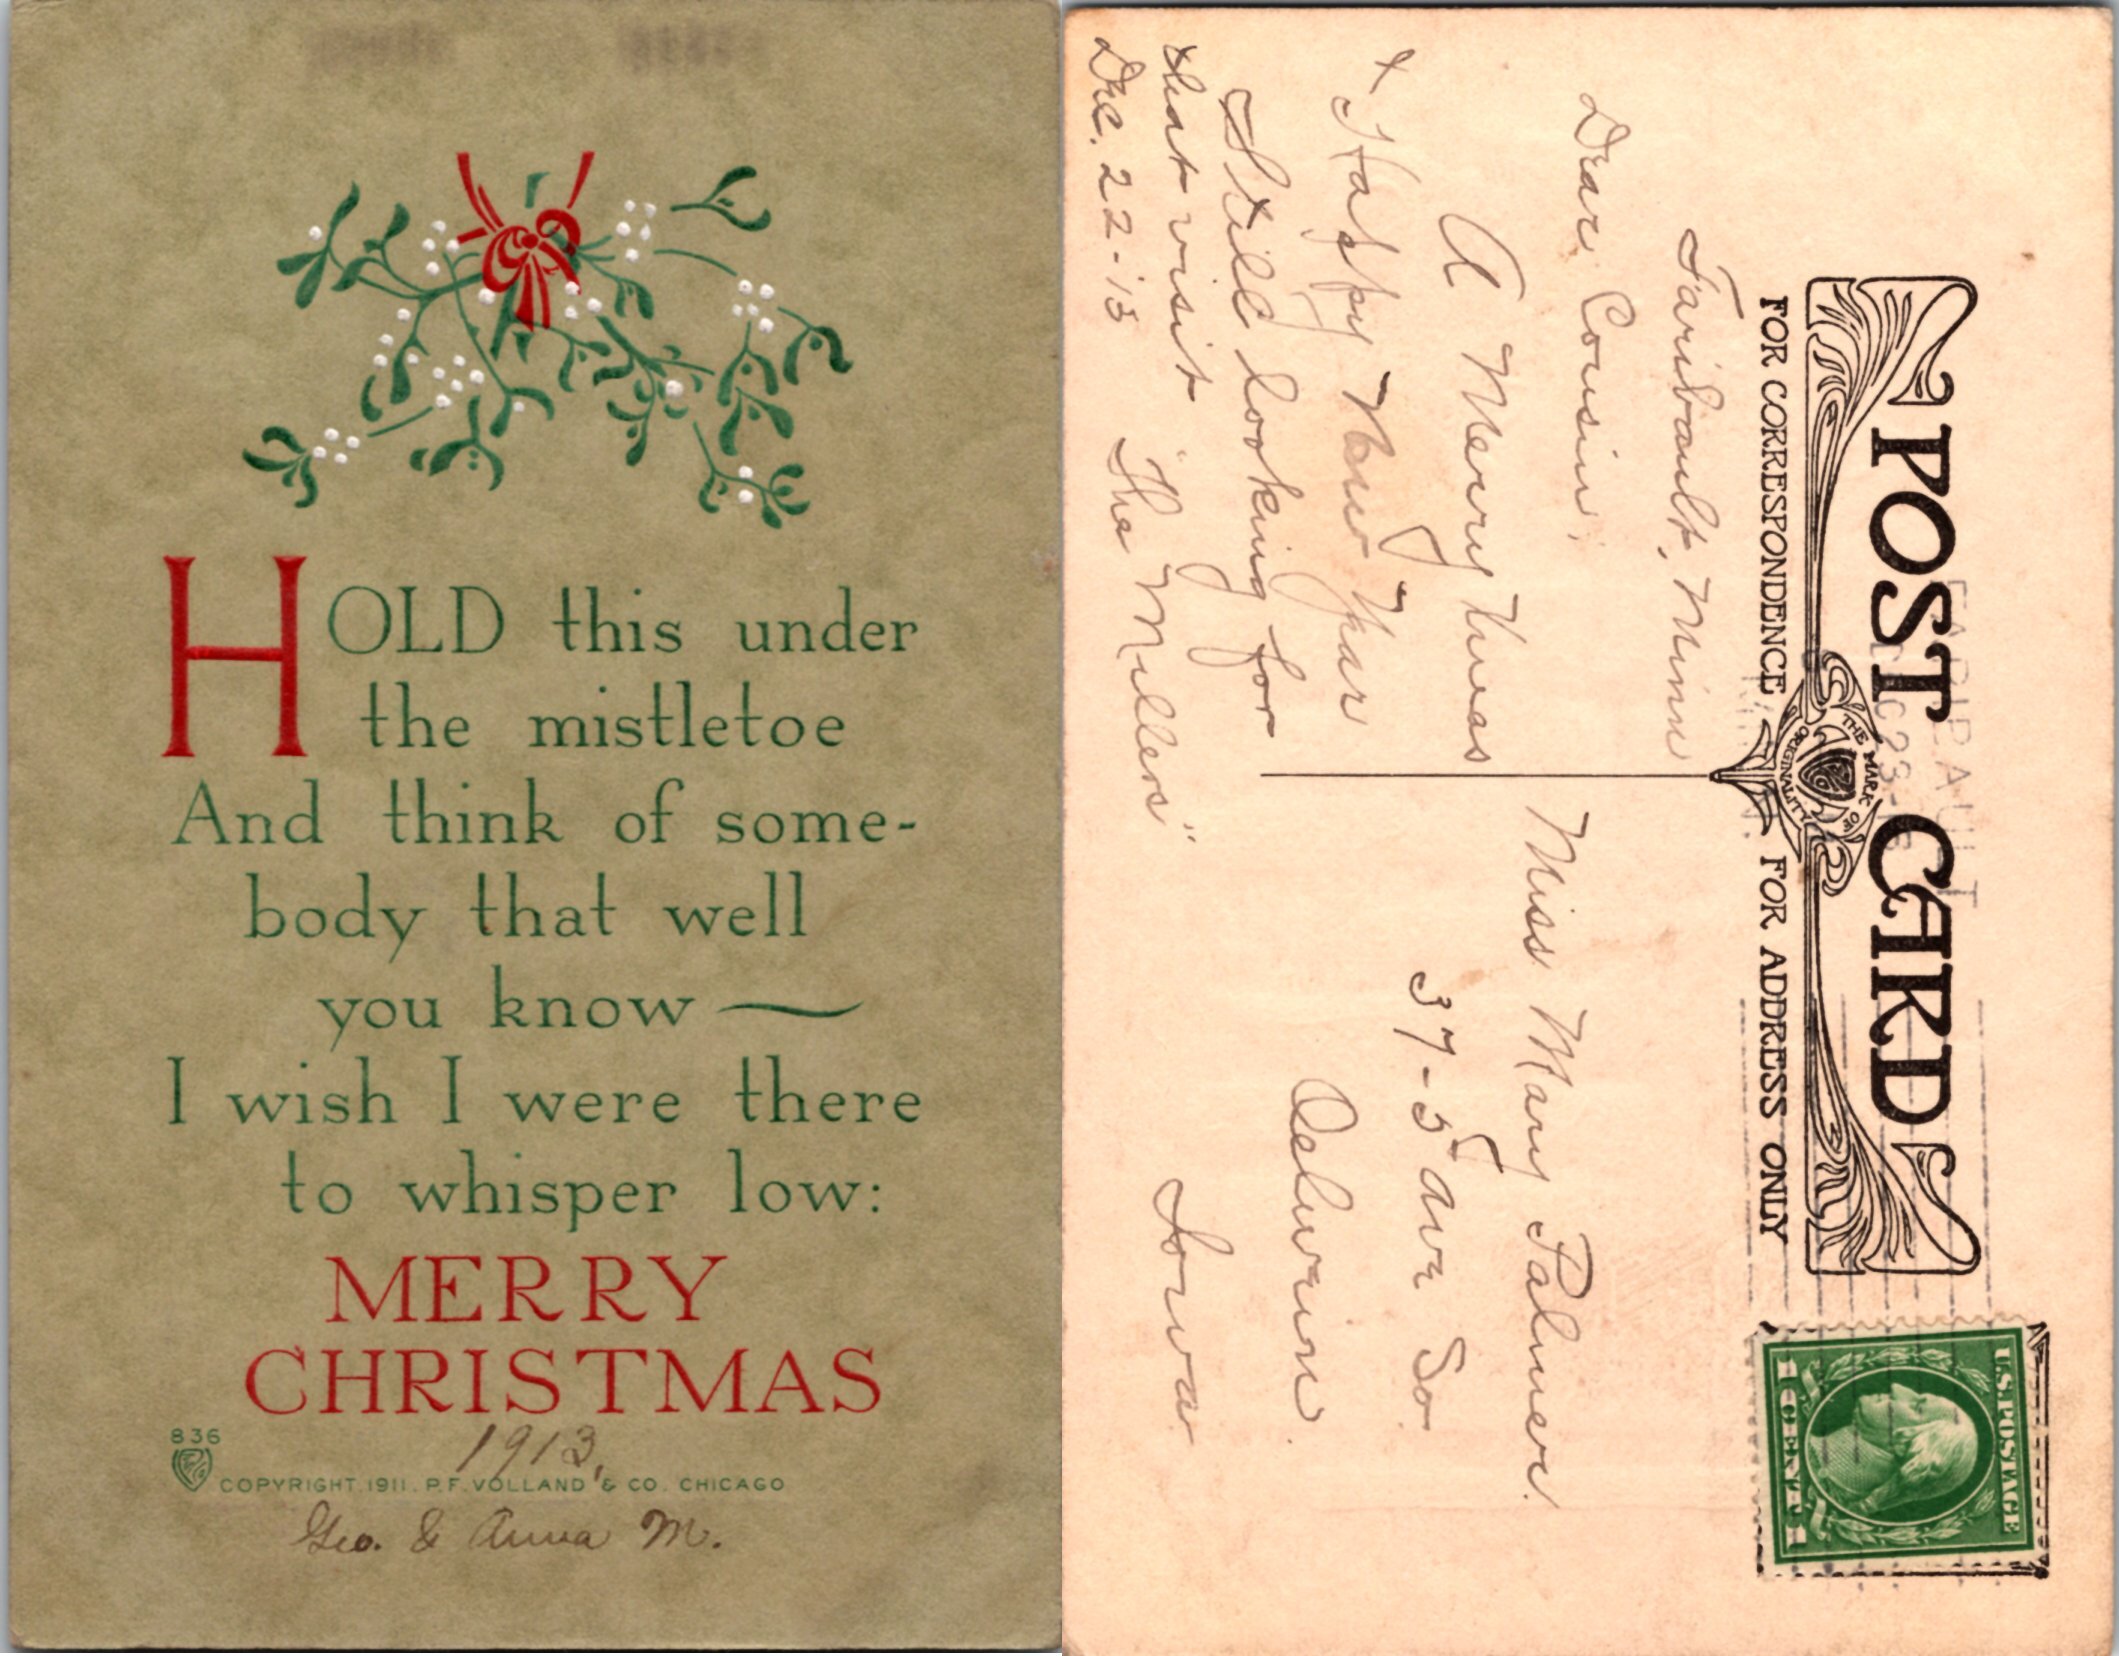 HOLD this under
the mistletoe
And think of some-
body that well
you know —
I wish I were there
to whisper low:
MERRY
CHRISTMAS
1913,
836
COPYRIGHT. 1911. P. F. VOLLAND & CO. CHICAGO
Geo. & Anna M.
POST CARD
THE MARK OF
ORIGINALITY
FOR CORRESPONDENCE
FOR ADDRESS ONLY
FARIBAULT
DEC 23
U.S. POSTAGE
1 CENT 1
Faribault, Minn
Dear Cousin,
A Merry Xmas
& Happy New Year
Still looking for
that visit
"The Millers"
Dec. 22-13
Miss Mary Palmer.
37-5 ave So.
Oelwein.
Iowa